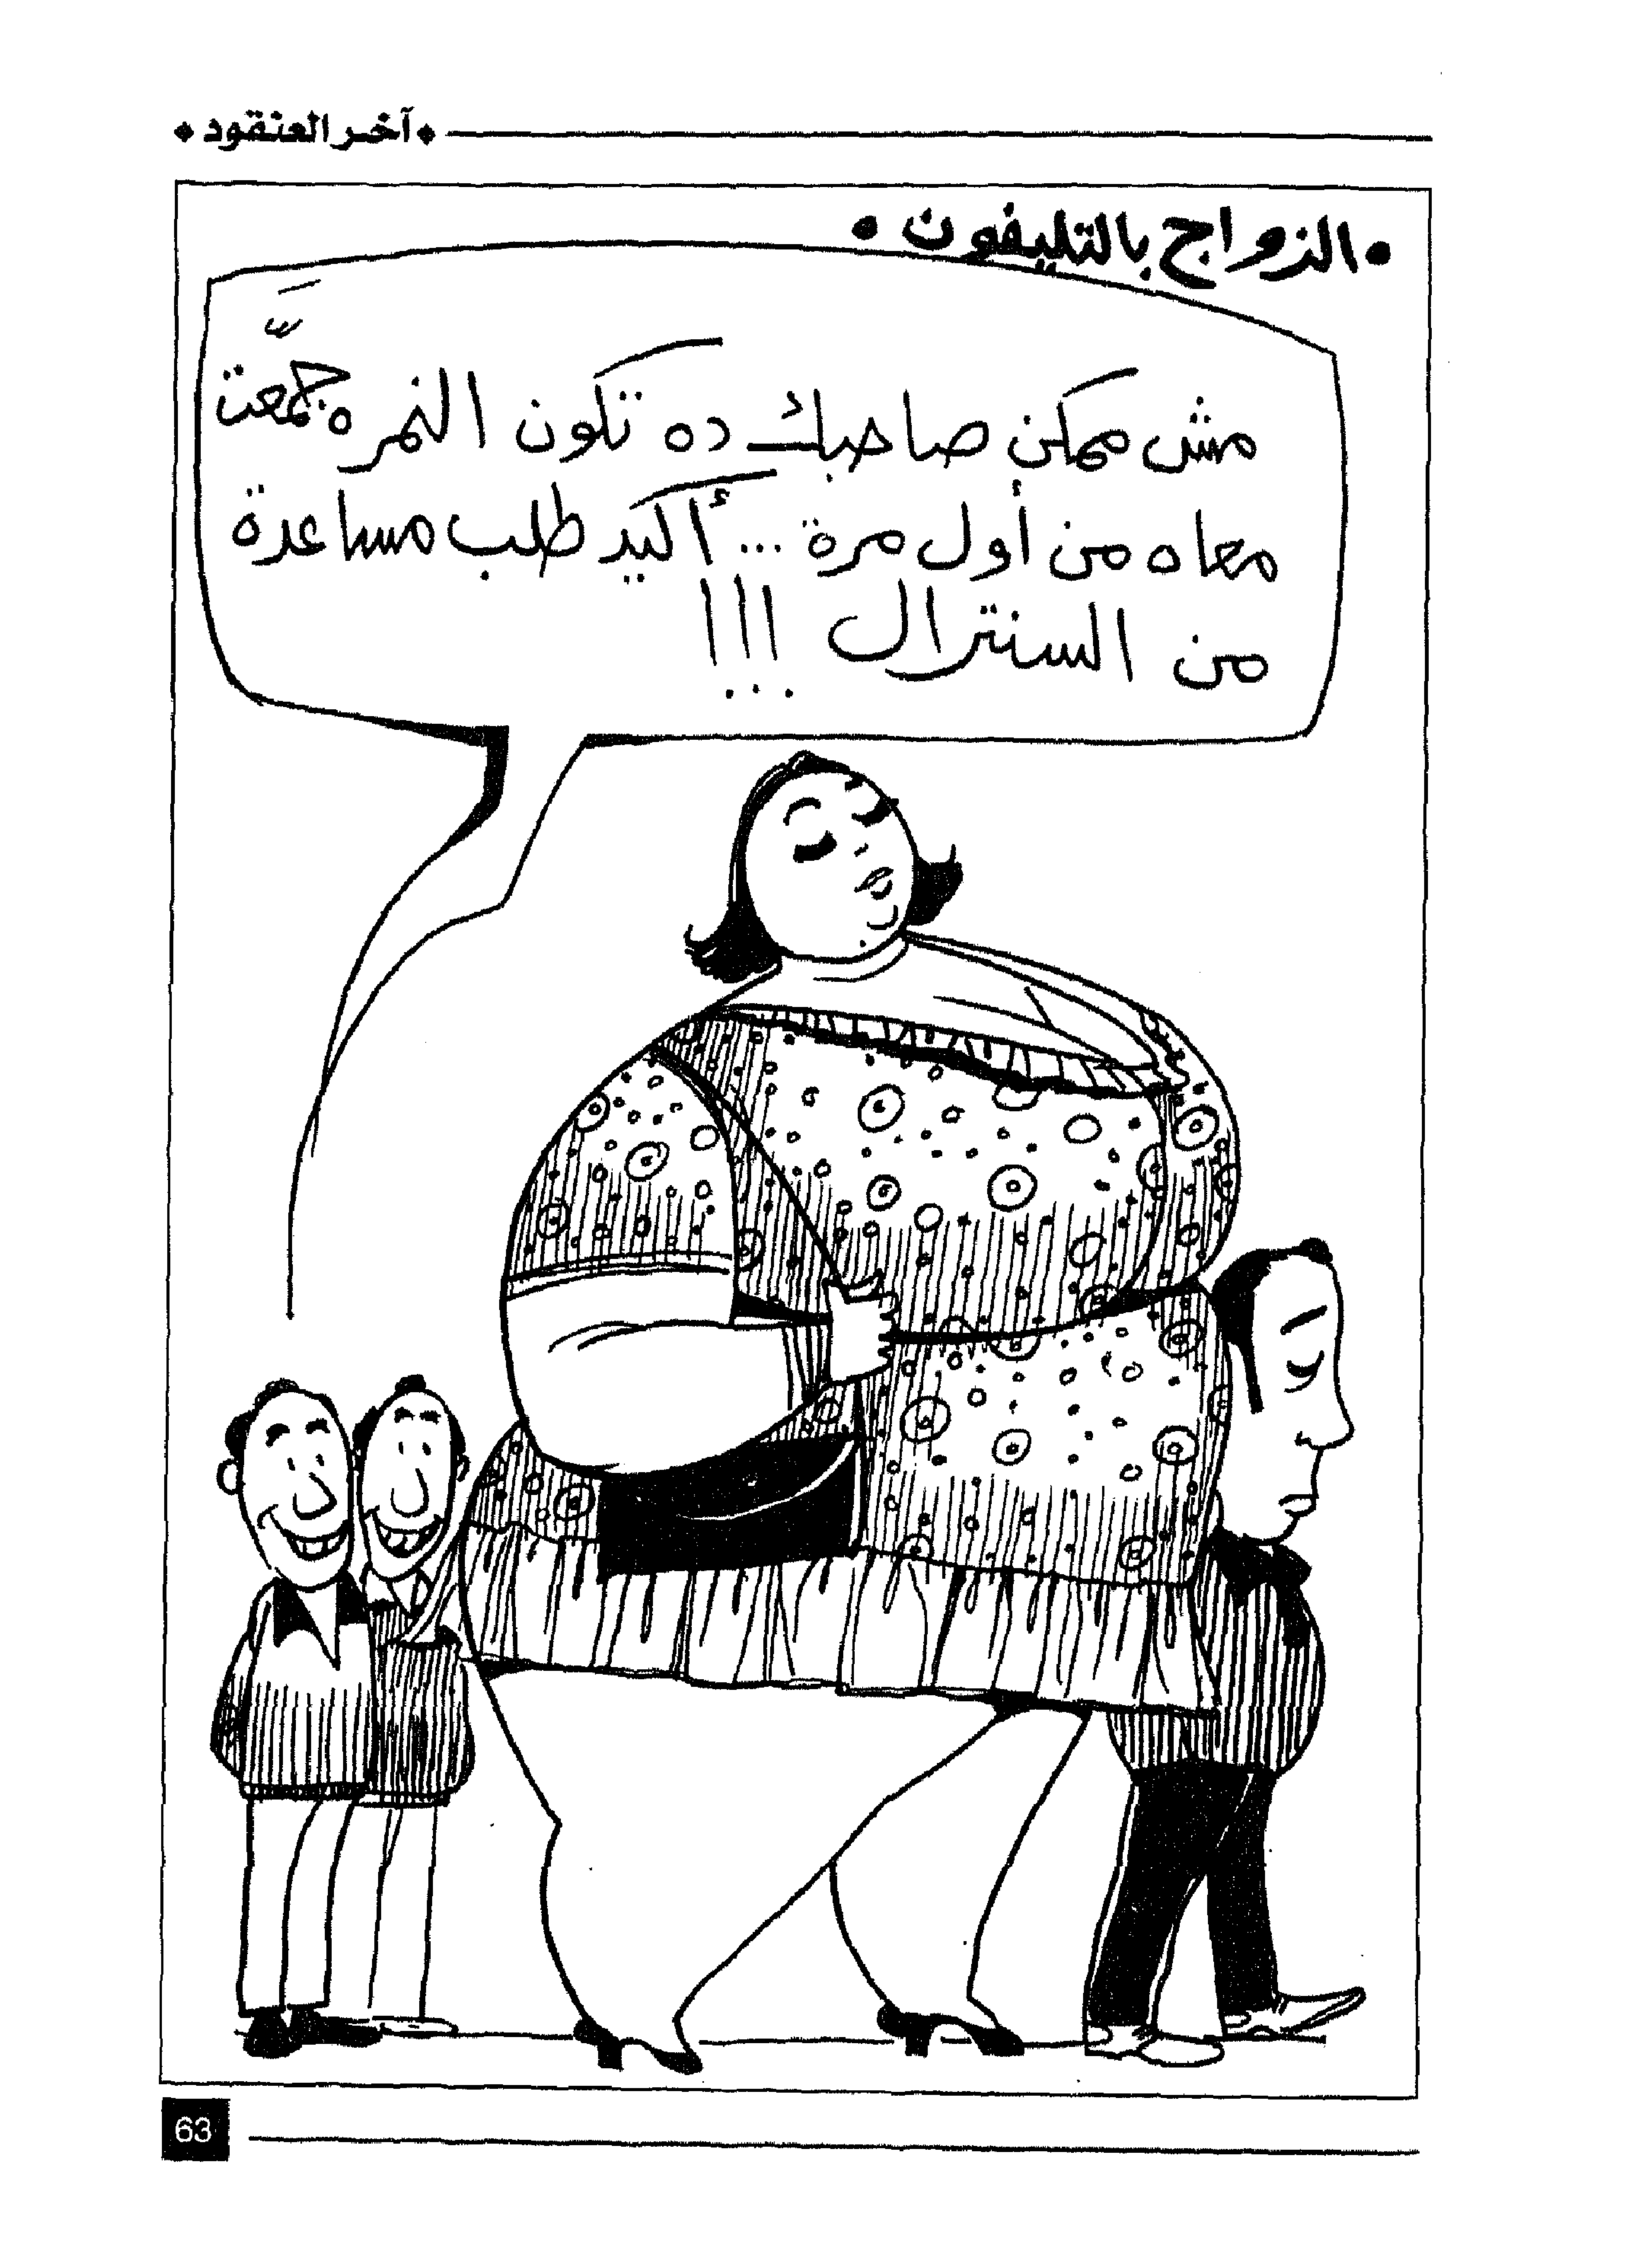 آخر العنقود
• الزواج بالتليفون •
مش ممكن صاحبك ده تكون النمره جمّعت
معاه من أول مرة ... أكيد طلب مساعدة
من السنترال !!!
63